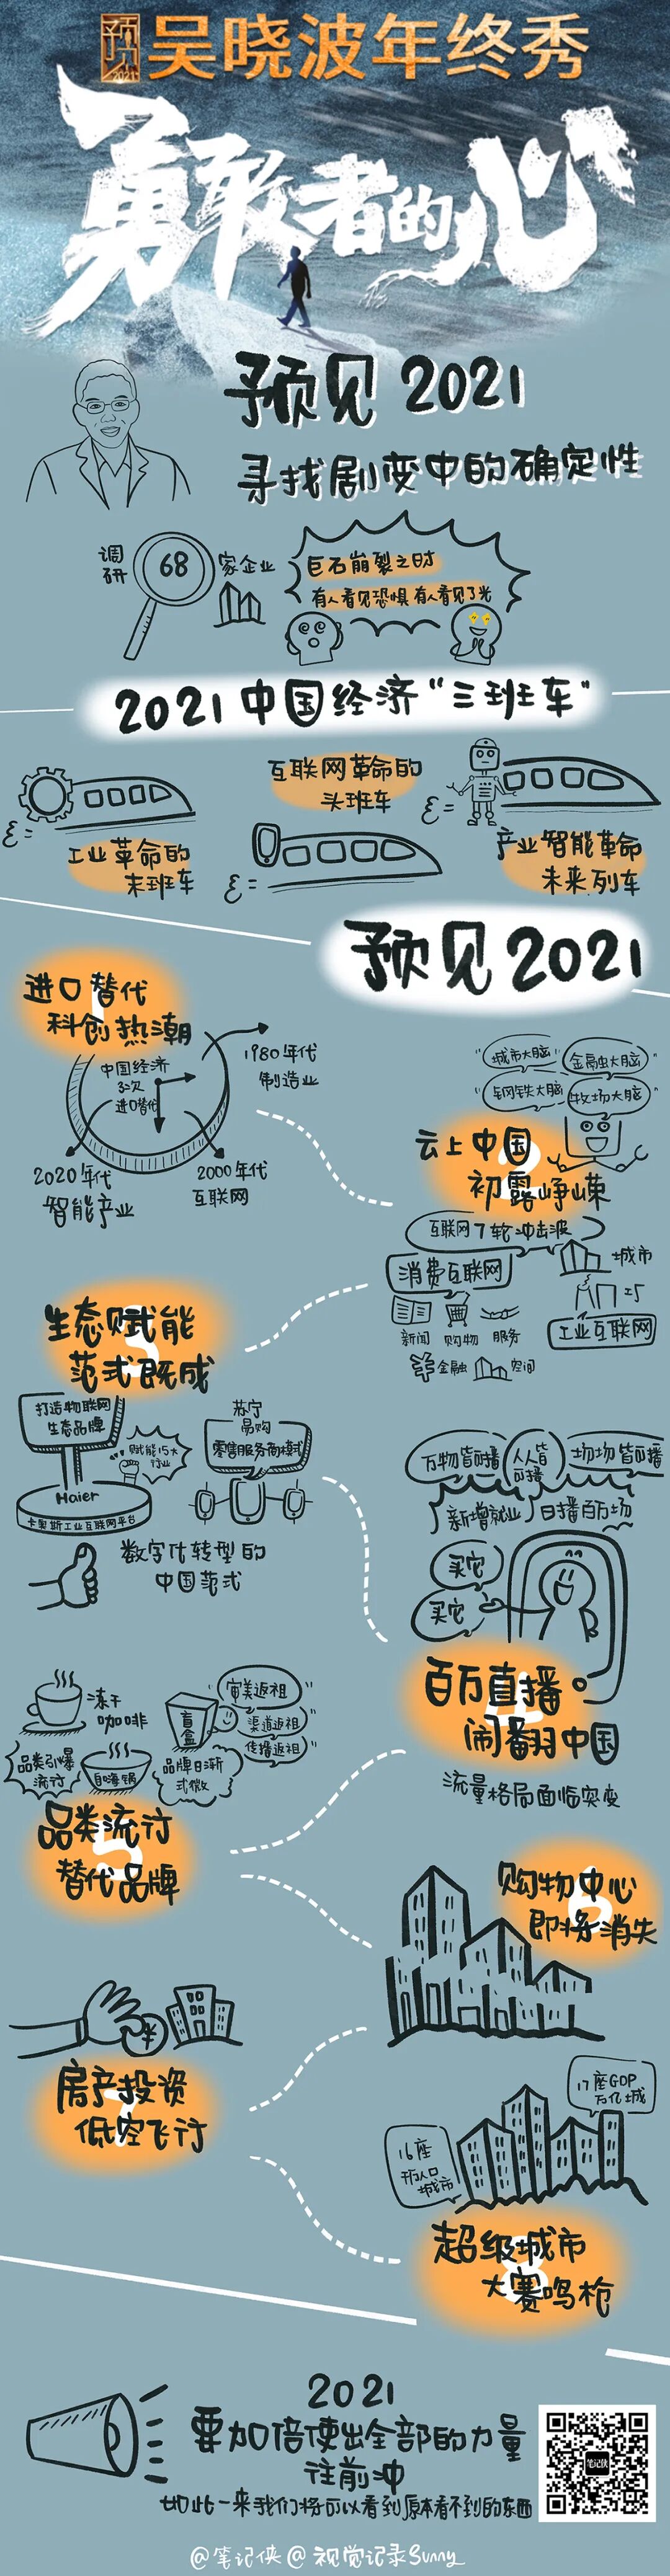 预见
2021
吴晓波年终秀
勇敢者的心
预见 2021
寻找剧变中的确定性
调研
68
家企业
巨石崩裂之时
有人看见恐惧 有人看见了光
2021 中国经济“三班车”
工业革命的
末班车
互联网革命的
头班车
产业智能革命
未来列车
预见2021
1
进口替代
科创热潮
中国经济
3次
进口替代
1980年代
制造业
2000年代
互联网
2020年代
智能产业
“城市大脑
金融大脑”
“钢铁大脑
牧场大脑”
2
云上中国
初露峥嵘
互联网7轮冲击波
消费互联网
新闻
购物
服务
金融
空间
城市
工业互联网
3
生态赋能
范式既成
打造物联网
生态品牌
赋能15大
行业
Haier
卡奥斯工业互联网平台
苏宁
易购
零售服务商模式
数字化转型的
中国范式
万物皆可播
人人皆
可播
场场皆可播
新增就业
日播百万场
买它
买它
4
百万直播
闹翻中国
流量格局面临突变
冻干
咖啡
品类引爆
流行
自嗨锅
盲盒
品牌日渐
式微
“审美返祖”
渠道返祖
传播返祖
5
品类流行
替代品牌
6
购物中心
即将消失
¥
7
房产投资
低空飞行
17座GDP
万亿城
16座
千万人口
城市
8
超级城市
大赛鸣枪
2021
要加倍使出全部的力量
往前冲
如此一来我们将可以看到原本看不到的东西
笔记侠
@笔记侠@视觉记录Sunny